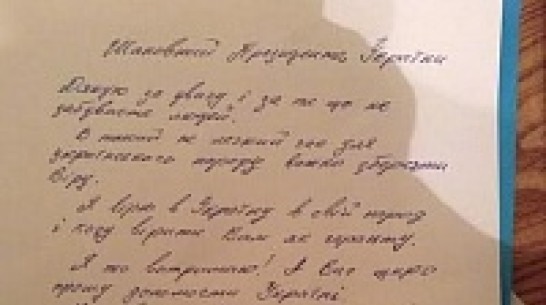 Шановний Президенте України
Дякую за увагу і за те що не
забуваєте людей.
В такий не легкий час для
українського народу важко зберігати
віру.
Я вірю в Україну в свій народ
і хочу вірити Вам як гаранту.
Я то витримаю! А Вас щиро
прошу допомогти Україні